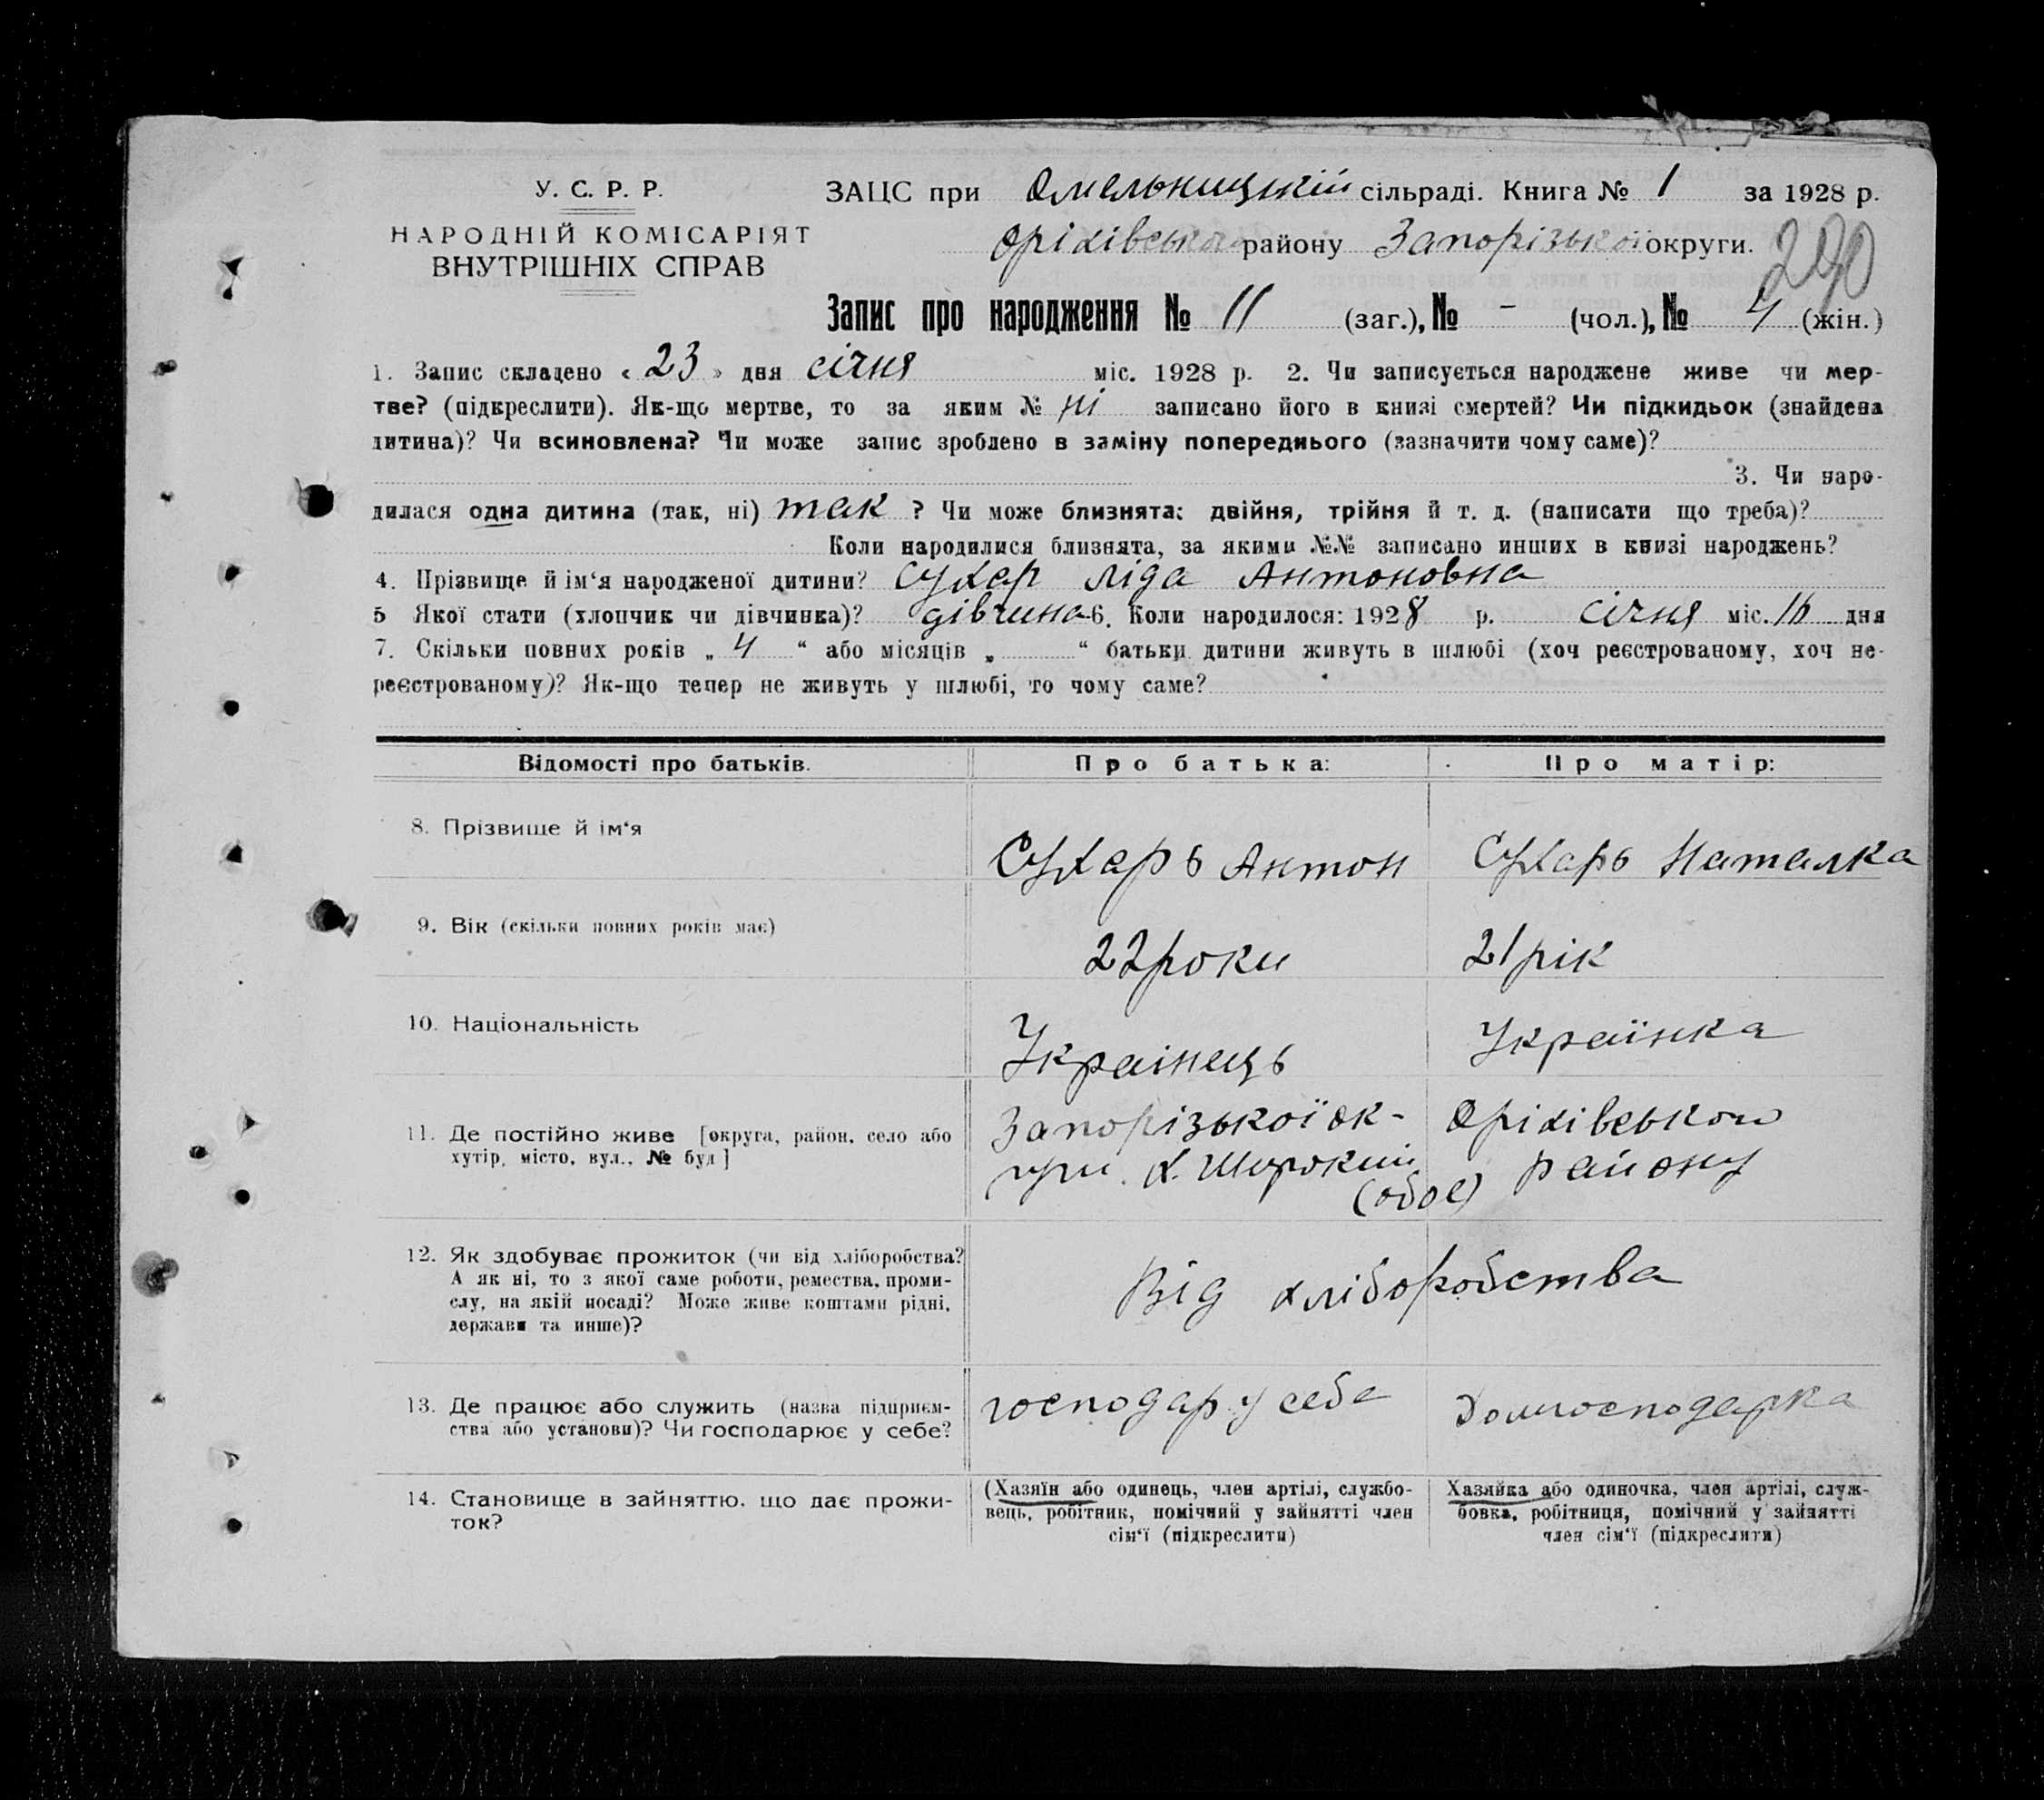 У. С. Р. Р.
НАРОДНІЙ КОМІСАРІЯТ
ВНУТРІШНІХ СПРАВ
ЗАЦС при Омельницькій сільраді. Книга № 1 за 1928 р.
Оріхівського району Запорізької округи.
290
Запис про народження № 11 (заг.), № - (чол.), № 4 (жін.)
1. Запис складено « 23 » дня січня міс. 1928 р. 2. Чи записується народжене живе чи мер-
тве? (підкреслити). Як-що мертве, то за яким № ні записано його в книзі смертей? Чи підкидьок (знайдена
дитина)? Чи всиновлена? Чи може запис зроблено в заміну попереднього (зазначити чому саме)?
3. Чи наро-
дилася одна дитина (так, ні) так ? Чи може близнята: двійня, трійня й т. д. (написати що треба)?
Коли народилися близнята, за якими №№ записано инших в книзі народжень?
4. Прізвище й ім‘я народженої дитини? Сухар Ліда Антоновна
5 Якої стати (хлопчик чи дівчинка)? дівчина 6. Коли народилося: 1928 р. січня міс. 16 дня
7. Скільки повних років „ 4 “ або місяців „ “ батьки дитини живуть в шлюбі (хоч реєстрованому, хоч не-
реєстрованому)? Як-що тепер не живуть у шлюбі, то чому саме?
Відомості про батьків. Про батька: Про матір:
8. Прізвище й ім‘я Сухарь Антон Сухарь Наталка
9. Вік (скільки повних років має) 22 роки 21 рік
10. Національність Украінець Українка
11. Де постійно живе [округа, район, село або
хутір, місто, вул., № буд]
Запорізької ок- Оріхівського
руги. х. Широкий району
(обоє)
12. Як здобуває прожиток (чи від хліборобства?
А як ні, то з якої саме роботи, ремества, проми-
слу, на якій посаді? Може живе коштами рідні,
держави та инше)?
Від хліборобства
13. Де працює або служить (назва підприєм-
ства або установи)? Чи господарює у себе?
господар у себе Домгосподарка
14. Становище в зайняттю, що дає прожи-
ток?
(Хазяїн або одинець, член артілі, службо-
вець, робітник, помічний у зайнятті член
сім‘ї (підкреслити)
Хазяйка або одиночка, член артілі, служ-
бовка, робітниця, помічний у зайнятті
член сім‘ї (підкреслити)